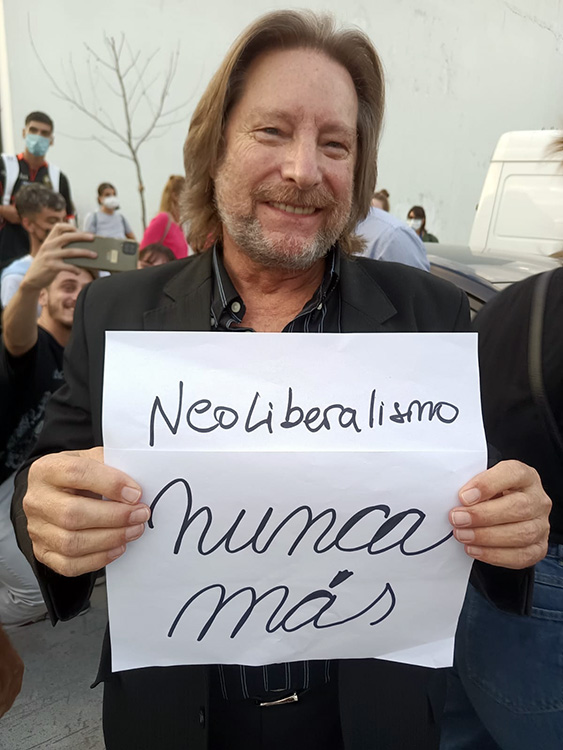 Neoliberalismo
nunca
más